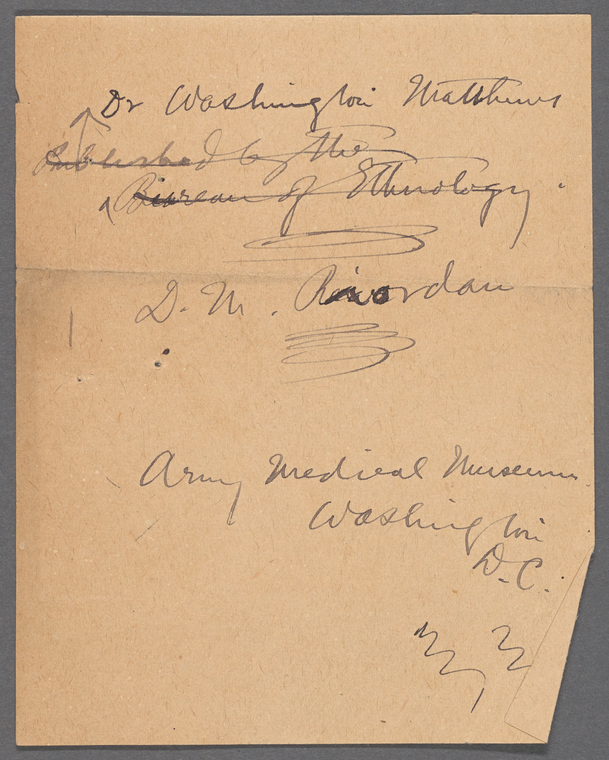 Dr Washington Matthews
Published by the
Bureau of Ethnology.
D. M. Riordan
Army Medical Museum
Washington
D.C.